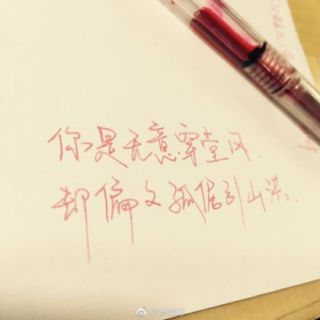 你是无意穿堂风.
却偏又孤倨引山洪.